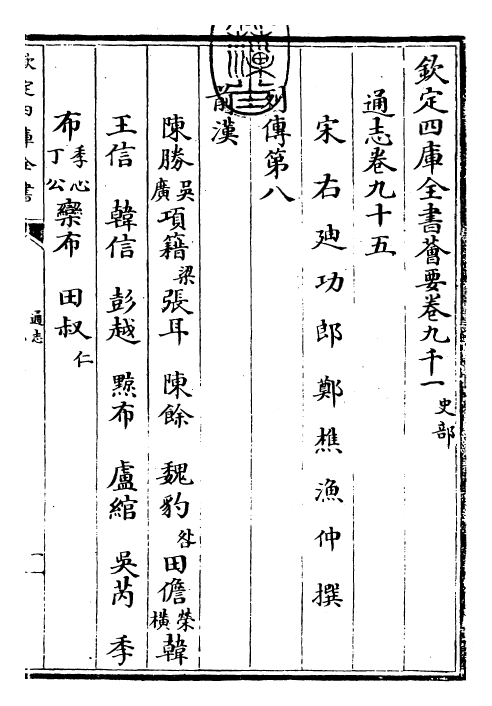 欽定四庫全書薈要卷九千一 史部
通志卷九十五
宋右廸功郎鄭樵漁仲撰
列傳第八
前漢
陳勝 吳廣 項籍 梁 張耳 陳餘 魏豹 咎 田儋 榮橫 韓
王信 韓信 彭越 黥布 盧綰 吳芮 季
布 季心丁公 欒布 田叔 仁
欽定四庫全書
通志
一